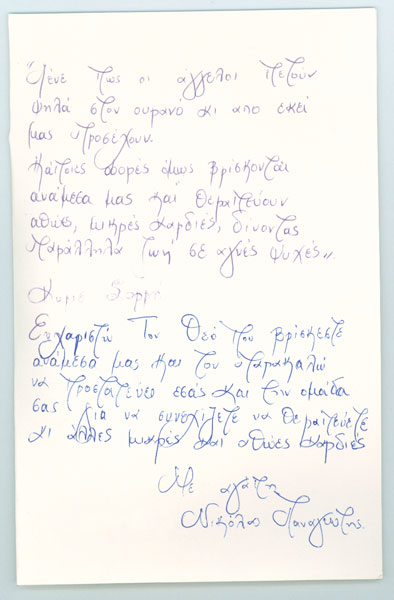 Λένε πως οι άγγελοι πετούν
ψηλά στον ουρανό κι απο εκεί
μας προσέχουν.
Κάποιες φορές όμως βρίσκονται
ανάμεσα μας και θεραπεύουν
αθώες, μικρές καρδιές, δίνοντας
παράλληλα ζωή σε αγνές ψυχές».
Κυριε
Ευχαριστώ τον Θεό που βρίσκεστε
ανάμεσα μας και τον παρακαλώ
να προστατεύει εσάς και την ομάδα
σας για να συνεχίζετε να θεραπεύετε
κι άλλες μικρές και αθώες καρδιές
Με αγάπη
Νικόλας Παναγιώτης.